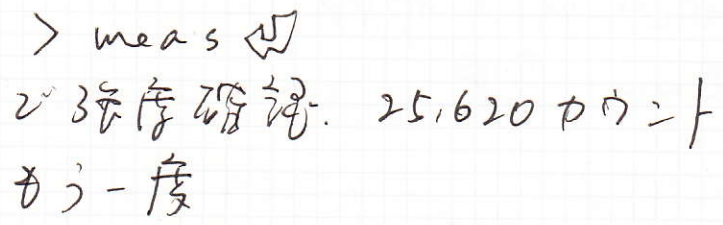 > meas ↵
で強度確認. 25,620カウント
もう一度